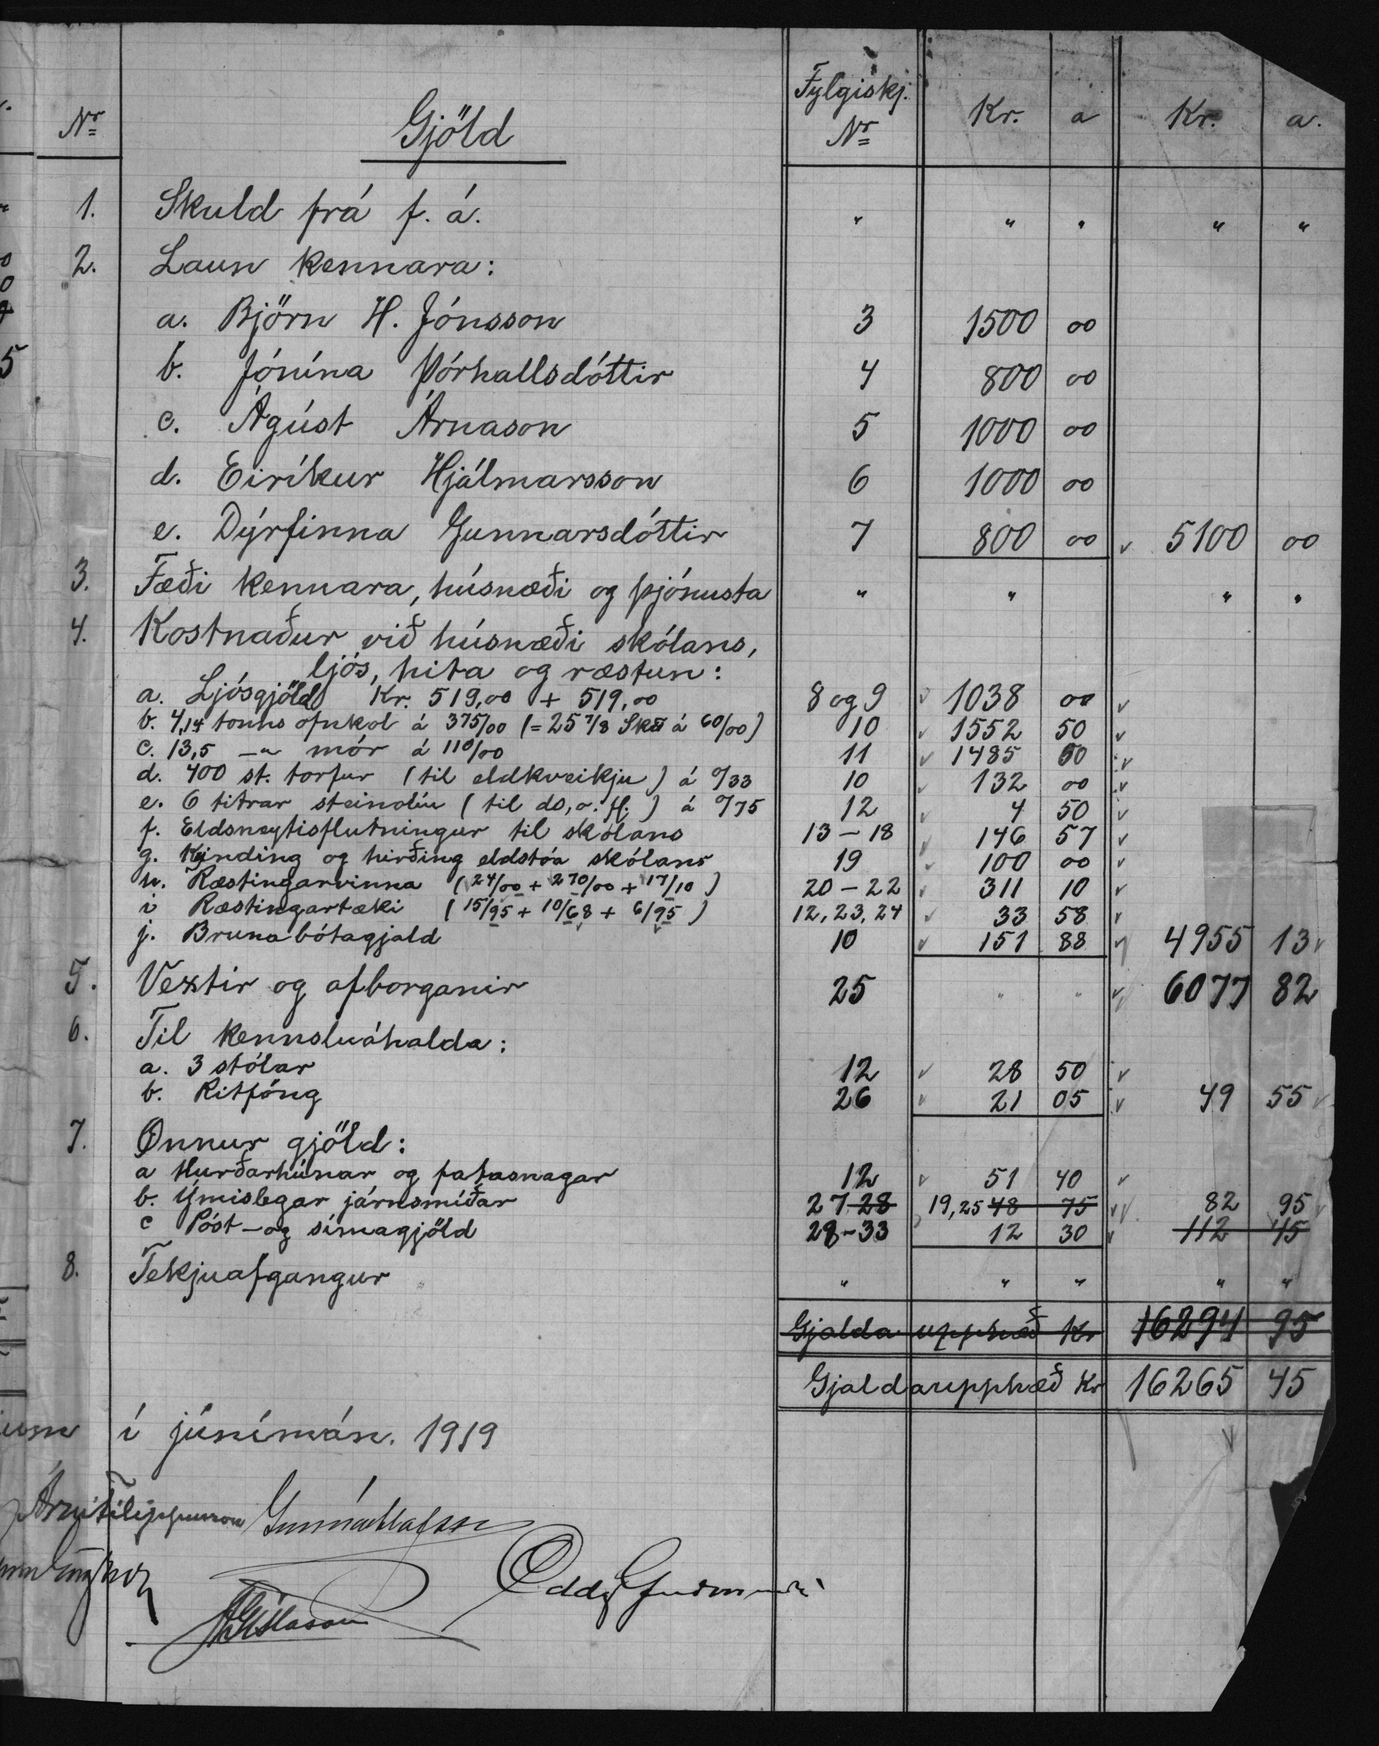 Nr. Gjöld Fylgiskj. Nr. Kr. a Kr. a.
1. Skuld frá f. á. " " " " "
2. Laun kennara:
a. Björn H. Jónsson 3 1500 00
b. Jónína Þórhallsdóttir 4 800 00
c. Ágúst Árnason 5 1000 00
d. Eiríkur Hjálmarsson 6 1000 00
e. Dýrfinna Gunnarsdóttir 7 800 00 5100 00
3. Fæði kennara, húsnæði og þjónusta " " " "
4. Kostnaður við húsnæði skólans,
ljós, hita og ræstun:
a. Ljósgjöld Kr. 519,00 + 519,00 8 og 9 1038 00
b. 4,14 tonns ofnkol á 375/00 (= 25 7/8 Skð á 60/00) 10 1552 50
c. 13,5 —"— mór á 110/00 11 1485 00
d. 400 st. torfur (til eldkveikju) á 0/33 10 132 00
e. 6 litrar steinolíu (til do, o. fl.) á 0/75 12 4 50
f. Eldsneytisflutningur til skólans 13–18 146 57
g. Kynding og hirðing eldstóa skólans 19 100 00
h. Ræstingarvinna (24/00 + 270/00 + 17/10) 20–22 311 10
i Ræstingartæki (15/95 + 10/68 + 6/95) 12, 23, 24 33 58
j. Brunabótagjald 10 151 88 4955 13
5. Vextir og afborganir 25 " " 6077 82
6. Til kennsluáhalda:
a. 3 stólar 12 28 50
b. Ritföng 26 21 05 49 55
7. Önnur gjöld:
a Hurðarhúnar og fatasnagar 12 51 40
b. Ýmislegar járnsmíðar 27-28 19,25 48 75 82 95
c Póst- og símagjöld 28–33 12 30 112 45
8. Tekjuafgangur " " " " "
Gjalda upphæð Kr 16294 95
Gjaldaupphæð Kr 16265 45
í júnímán. 1919
Árni Filippusson Gunnar Ólafsson
Oddg Guðmunds
Gíslason